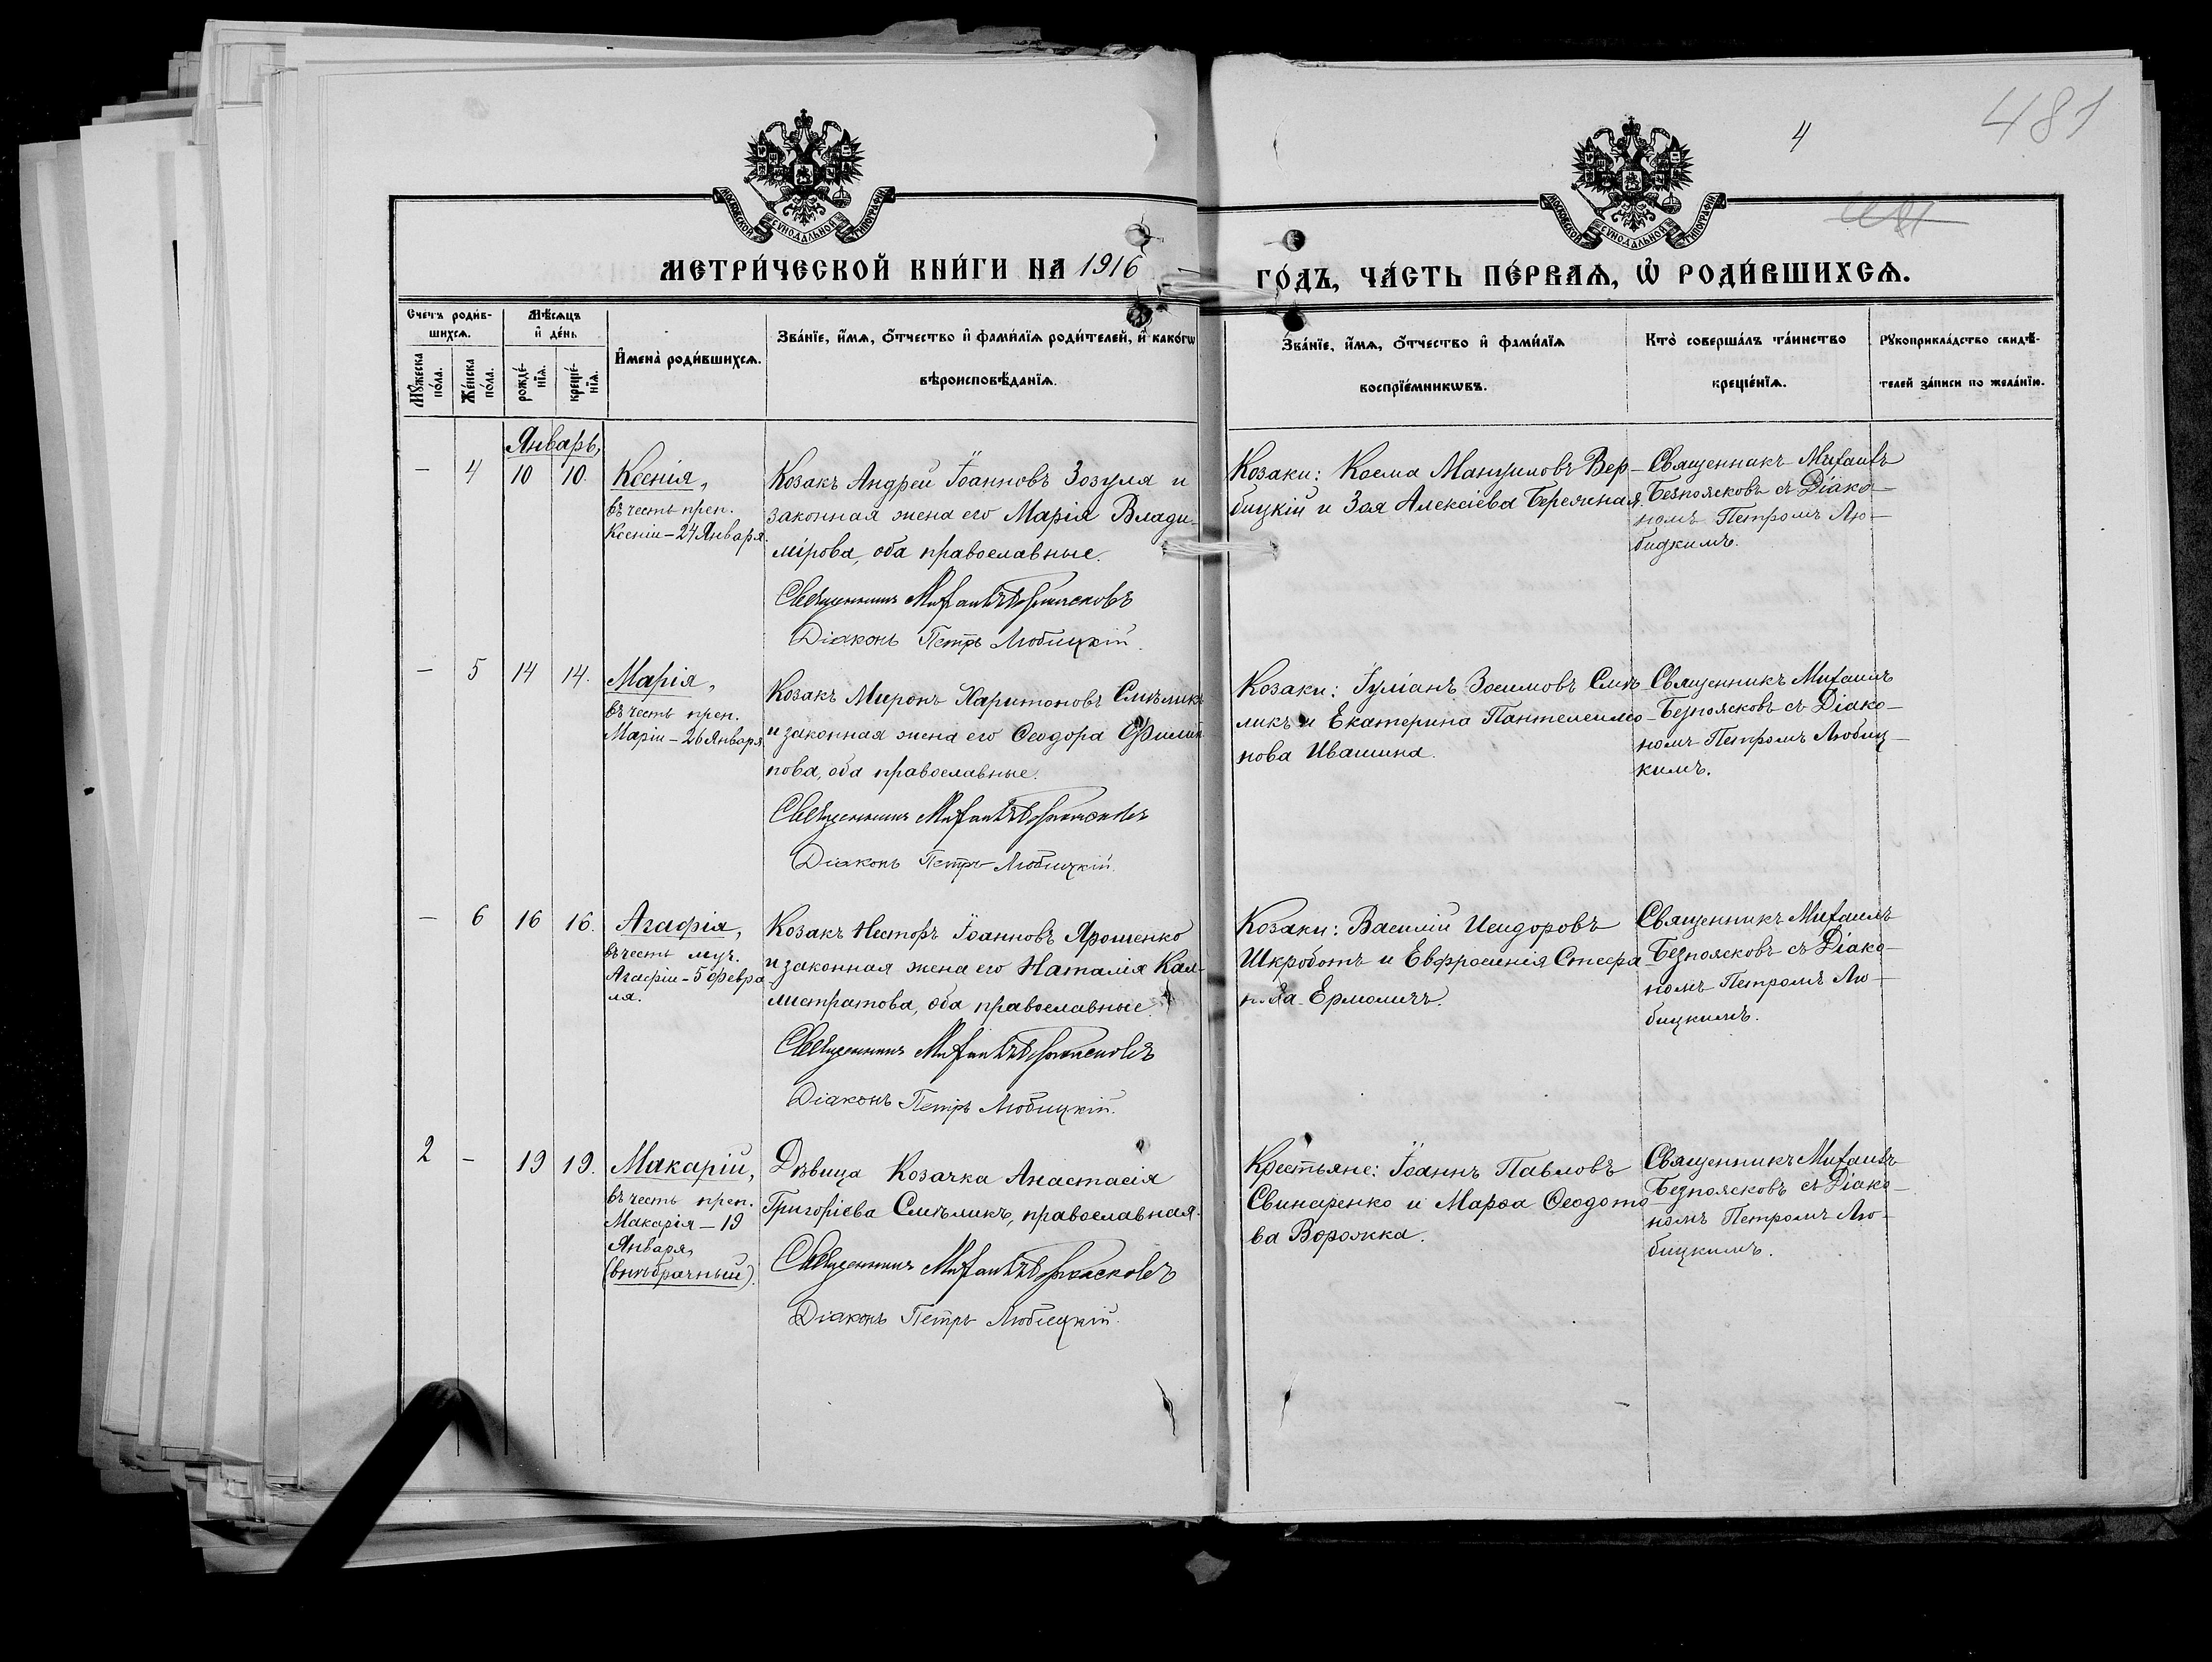 4
481
МОСКОВСКОЙ СѴНОДАЛЬНОЙ ТИПОГРАФІИ
МОСКОВСКОЙ СѴНОДАЛЬНОЙ ТИПОГРАФІИ
МЕТРИ́ЧЕСКОЙ КНИ́ГИ НА 1916
ГО́ДЪ, ЧА́СТЬ ПЕ́РВАѦ, Ѽ РОДИ́ВШИХСѦ.
Сче́тъ роди́в-
шихсѧ.
Мꙋ́жеска
по́ла.
Же́нска
по́ла.
Мѣ́сѧцъ
и҆ де́нь
рожде́-
нїѧ.
креще́-
нїѧ.
И҆мена̀ роди́вшихсѧ.
Зва́нїе, и҆́мѧ, ѻ҆́тчество и҆ фами́лїѧ роди́телей, и҆ како́гѡ
вѣроисповѣ́данїѧ.
Зва́нїе, и҆́мѧ, ѻ҆́тчество и҆ фами́лїѧ
воспрїе́мникѡвъ.
Кто̀ соверша́лъ та́инство
креще́нїѧ.
Рꙋкоприкла́дство свидѣ́-
телей за́писи по жела́нїю.
Январь,
— 4 10 10.
Ксенія,
въ честь преп.
Ксеніи – 24 Января.
Козакъ Андрей Іоанновъ Зозуля и
законная жена его Марія Влади-
мірова, оба православные.
Священникъ Михаилъ Безпоясковъ
Діаконъ Петръ Любицкій.
Козаки: Косма Мануиловъ Вер-
бицкій и Зоя Алексіева Бережная.
Священникъ Михаилъ
Безпоясковъ съ Діако-
номъ Петромъ Лю-
бицкимъ.
— 5 14 14.
Марія,
въ честь преп.
Маріи – 26 Января.
Козакъ Миронъ Харитоновъ Смѣликъ
и законная жена его Ѳеодора Филип-
пова, оба православные.
Священникъ Михаилъ Безпоясковъ
Діаконъ Петръ Любицкій.
Козаки: Іуліанъ Зосимовъ Смѣ-
ликъ и Екатерина Пантелеимо-
нова Ивашина.
Священникъ Михаилъ
Безпоясковъ съ Діако-
номъ Петромъ Любиц-
кимъ.
— 6 16 16.
Агафія,
въ честь муч.
Агафіи – 5 Февра
ля.
Козакъ Несторъ Іоанновъ Ярошенко
и законная жена его Наталія Кал-
листратова, оба православные.
Священникъ Михаилъ Безпоясковъ
Діаконъ Петръ Любицкій.
Козаки: Василій Исидоровъ
Шкроботъ и Евфросинія Стефа
Ермоличъ.
Священникъ Михаилъ
Безпоясковъ съ Діако-
номъ Петромъ Лю-
бицкимъ.
2 – 19 19.
Макарій,
въ честь преп.
Макарія – 19
Января,
(внѣбрачный).
Дѣвица Козачка Анастасія
Григоріева Смѣликъ, православная.
Священникъ Михаилъ Безпоясковъ
Діаконъ Петръ Любицкій.
Крестьяне: Іоаннъ Павловъ
Свинаренко и Марѳа Ѳеодото
ва Ворожка.
Священникъ Михаилъ
Безпоясковъ съ Діако-
номъ Петромъ Лю-
бицкимъ.